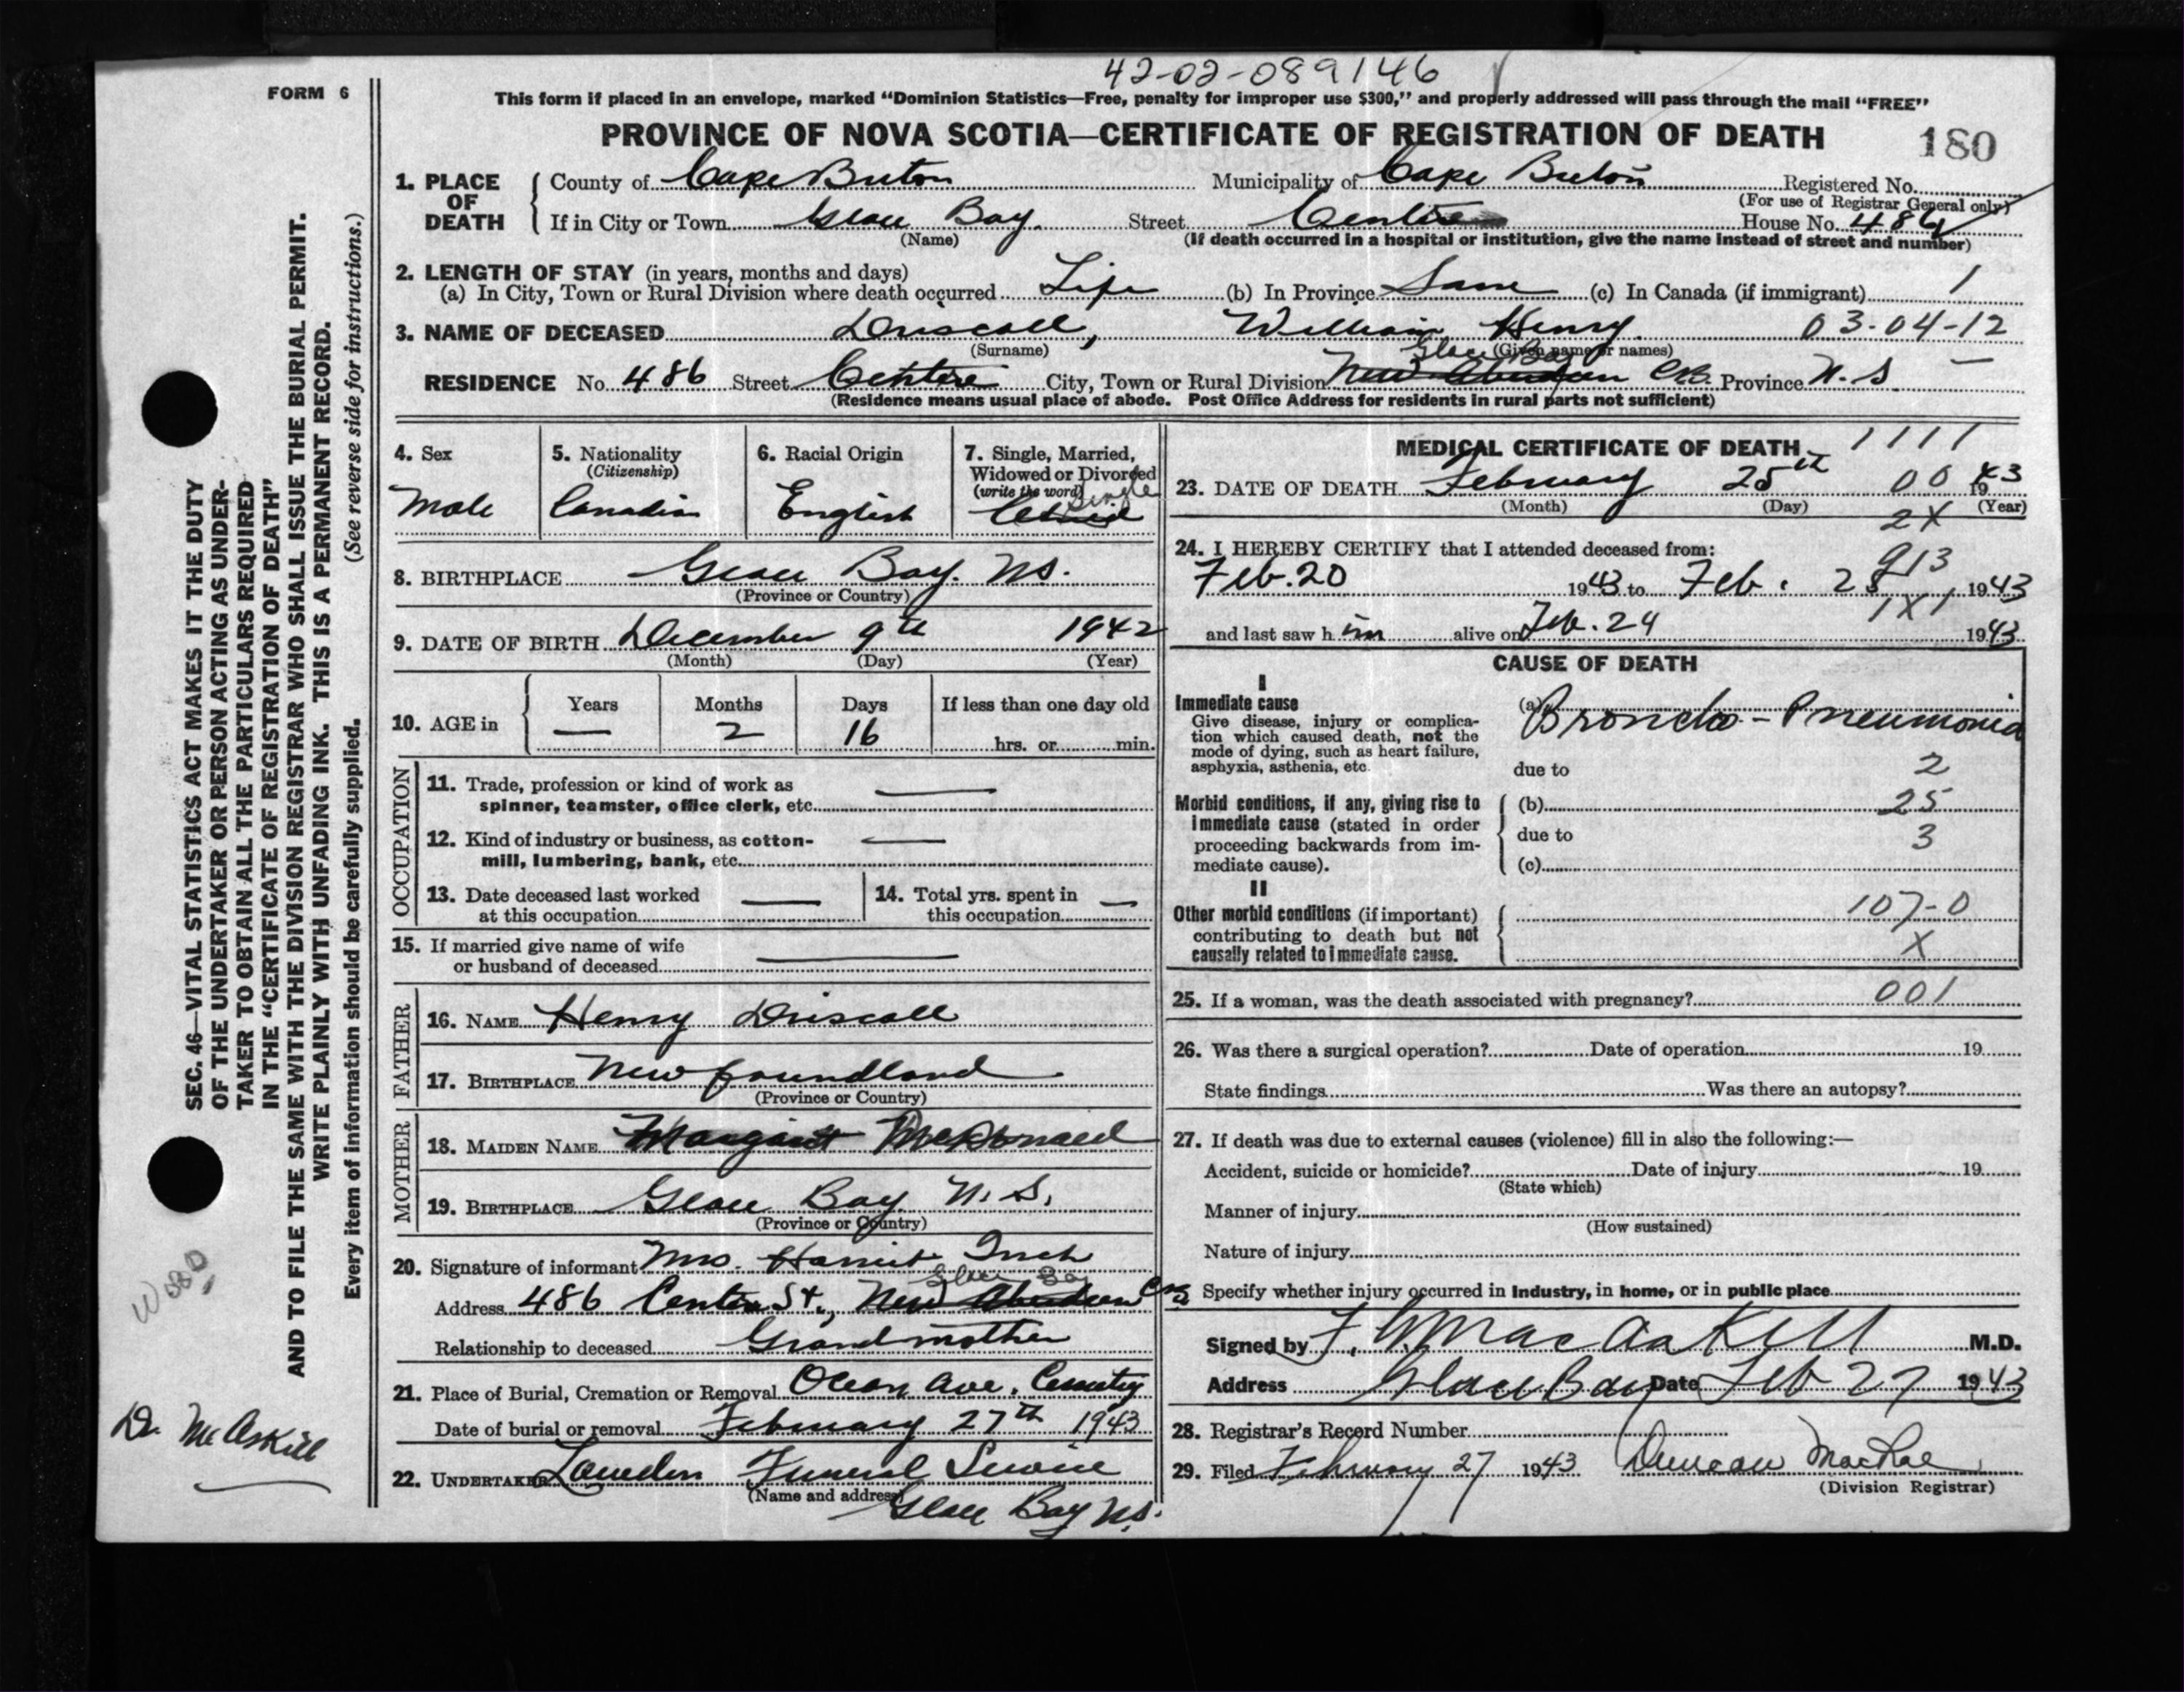 42-02-089146
FORM 6
This form if placed in an envelope, marked “Dominion Statistics—Free, penalty for improper use $300,” and properly addressed will pass through the mail “FREE”
PROVINCE OF NOVA SCOTIA—CERTIFICATE OF REGISTRATION OF DEATH 180
1. PLACE OF DEATH
County of Cape Breton Municipality of Cape Breton Registered No.
(For use of Registrar General only)
If in City or Town Glace Bay. Street Centre House No. 486
(Name) (If death occurred in a hospital or institution, give the name instead of street and number)
2. LENGTH OF STAY (in years, months and days)
(a) In City, Town or Rural Division where death occurred Life (b) In Province Same (c) In Canada (if immigrant) 1
3. NAME OF DECEASED Driscoll, William Henry 03-04-12
(Surname) (Given name or names)
Glace Bay
RESIDENCE No. 486 Street Centre City, Town or Rural Division New Aberdeen C.B. Province N.S
(Residence means usual place of abode. Post Office Address for residents in rural parts not sufficient)
4. Sex
Male
5. Nationality
(Citizenship)
Canadian
6. Racial Origin
English
7. Single, Married,
Widowed or Divorced
(write the word)
Single
8. BIRTHPLACE Glace Bay. NS.
(Province or Country)
9. DATE OF BIRTH December 9th 1942
(Month) (Day) (Year)
10. AGE in
Years Months Days If less than one day old
— 2 16 hrs. or min.
OCCUPATION
11. Trade, profession or kind of work as
spinner, teamster, office clerk, etc. —
12. Kind of industry or business, as cotton-
mill, lumbering, bank, etc. —
13. Date deceased last worked
at this occupation —
14. Total yrs. spent in
this occupation —
15. If married give name of wife
or husband of deceased —
FATHER
16. NAME Henry Driscoll
17. BIRTHPLACE Newfoundland
(Province or Country)
MOTHER
18. MAIDEN NAME Margaret McDonald
19. BIRTHPLACE Glace Bay. N.S.
(Province or Country)
20. Signature of informant Mrs. Harriet Inch
Glace Bay
Address 486 Centre St., New Aberdeen CB
Relationship to deceased Grandmother
21. Place of Burial, Cremation or Removal Ocean Ave. Cemetery
Date of burial or removal February 27th 1943
22. UNDERTAKER Funeral Service
(Name and address)
Glace Bay NS.
MEDICAL CERTIFICATE OF DEATH 1111
23. DATE OF DEATH February 25th 00 1943
(Month) (Day) (Year)
2X
24. I HEREBY CERTIFY that I attended deceased from:
913
Feb. 20 1943 to Feb. 25 1943
1X1
and last saw him alive on Feb. 24 1943
CAUSE OF DEATH
I
Immediate cause
Give disease, injury or complica-
tion which caused death, not the
mode of dying, such as heart failure,
asphyxia, asthenia, etc.
(a) Broncho-Pneumonia
due to 2
Morbid conditions, if any, giving rise to
immediate cause (stated in order
proceeding backwards from im-
mediate cause).
(b) 25
due to 3
(c)
II
Other morbid conditions (if important)
contributing to death but not
causally related to immediate cause.
107-0
X
25. If a woman, was the death associated with pregnancy? 001
26. Was there a surgical operation? Date of operation 19
State findings Was there an autopsy?
27. If death was due to external causes (violence) fill in also the following:—
Accident, suicide or homicide? Date of injury 19
(State which)
Manner of injury
(How sustained)
Nature of injury
Specify whether injury occurred in industry, in home, or in public place
Signed by MacAskill M.D.
Address Glace Bay Date Feb 27 1943
28. Registrar's Record Number
29. Filed February 27 1943 Duncan MacRae
(Division Registrar)
SEC. 46—VITAL STATISTICS ACT MAKES IT THE DUTY
OF THE UNDERTAKER OR PERSON ACTING AS UNDER-
TAKER TO OBTAIN ALL THE PARTICULARS REQUIRED
IN THE “CERTIFICATE OF REGISTRATION OF DEATH”
AND TO FILE THE SAME WITH THE DIVISION REGISTRAR WHO SHALL ISSUE THE BURIAL PERMIT.
WRITE PLAINLY WITH UNFADING INK. THIS IS A PERMANENT RECORD.
Every item of information should be carefully supplied. (See reverse side for instructions.)
Dr. McAskill